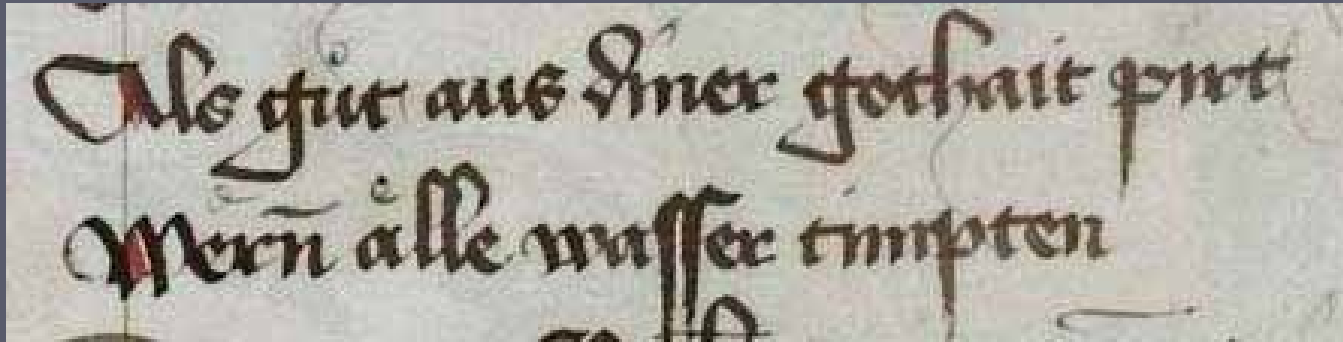 Als gůt aus diner gothait pirt
Wern̄ aͤlle wasser timpten